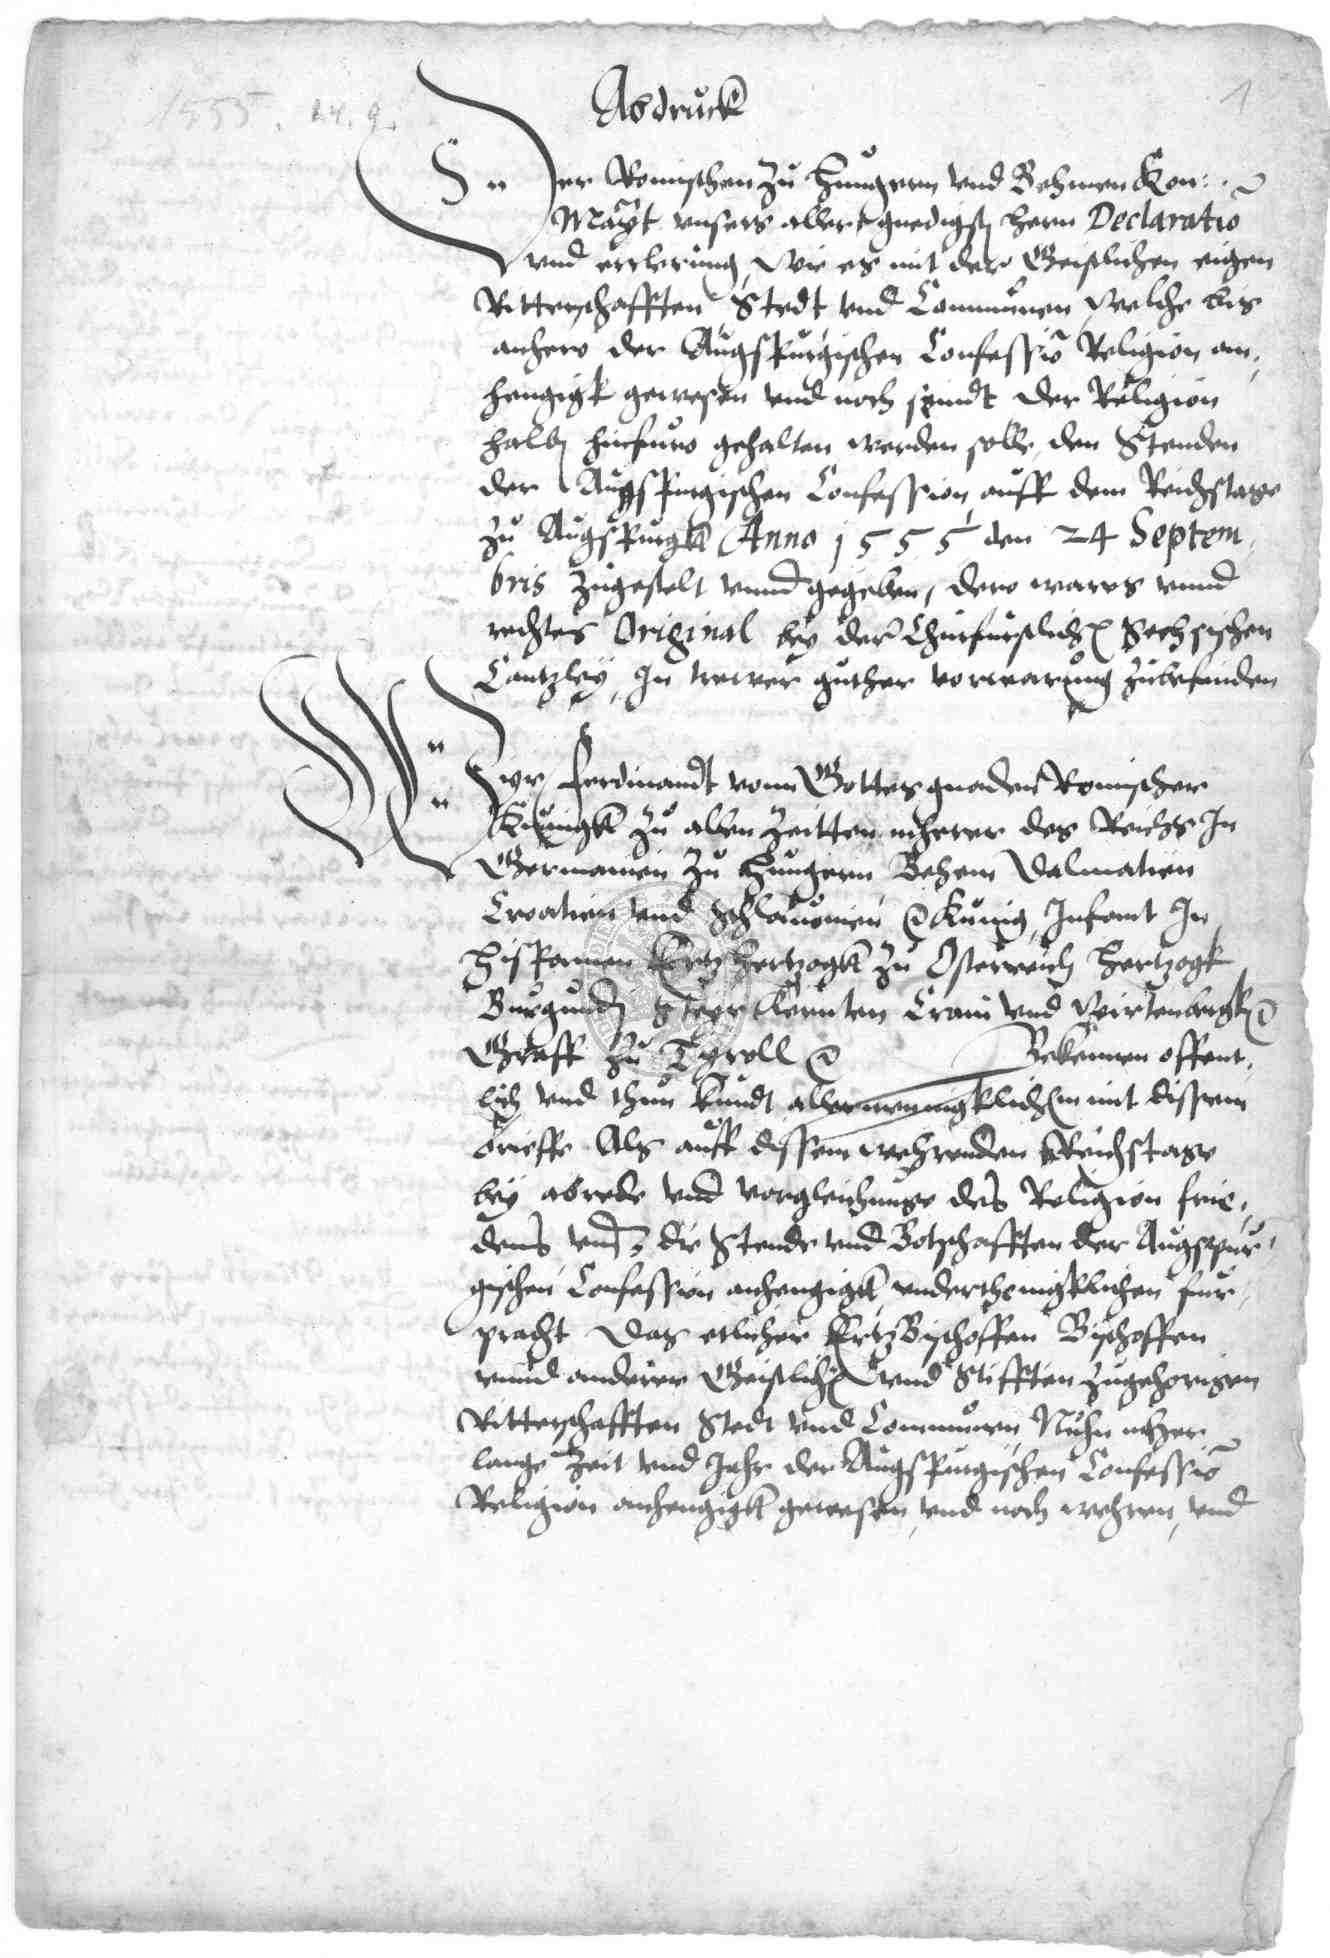 1555. 24. 9.
1
Abdruck
Der Romischen zu Hungern vnd Behmen Kon:
Mayt vnsers allergnedigst hern Declaratio
vnd erclerung, Wie es mit dero Geistlichen eigen
Ritterschafften Stedt vnd Communen welche bis
anhero der Augspurgischen Confessio Religion an,
hengigk gewesen vnd noch seindt der Religion
halb hinfuro gehalten werden solle, den Stenden
der Augspurgischen Confession auff dem Reichstage
zu Augspurgk Anno 1555 den 24 Septem,
bris zugestelt vnnd gegeben, dero wares vnnd
rechtes Original bey der Churfurstlich Sechsischen
Cantzley, In trewer guther vorwarung zubefinden
Wyr Ferdinandt vonn Gottes gnaden Romischer
Kunigk zu allen Zeitten meherer des Reichs In
Germanien zu Hungern Behem Dalmatien
Croatien vnd Schlauonien Kunig, Infant In
Hispannien Ertzhertzogk zu Osterreich Hertzogk
Burgund Steyr Kernten Crain vnd Wirtenbergk
Graff zu Tyroll Bekennen offent,
lich vnd thun kundt allermennigklichem mit dissem
brieffe Als auff dissem wehrenden Reichstage
bey abrede vnd vorgleichunge des Religion frie,
dens vns die Stende vnd Botschafften der Augspur,
gischen Confession anhengigk vnderthenigklichen fur,
pracht Das etlicher ErtzBischoffen Bischoffen
vnnd anderer Geistlich vnd Stifften zugehorigen
Ritterschafften Stedt vnd Communen Nuhn meher
lange Zeit vnd Jahr der Augspurgischen Confessio
Religion anhengigk gewesen, vnd noch wehren, vnd